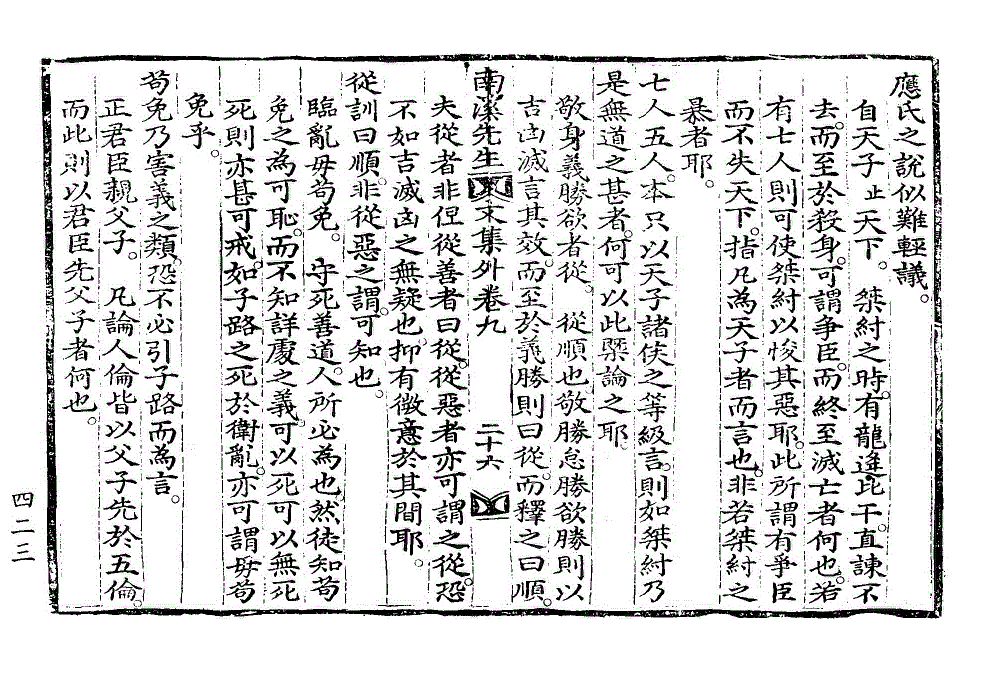 應氏之說似難輕議。
自天子止天下。 桀紂之時。有龍逄比干。直諫不
去。而至於殺身。可謂爭臣。而終至滅亡者何也。若
有七人則可使桀紂以悛其惡耶。此所謂有爭臣
而不失天下。指凡為天子者而言也。非若桀紂之
暴者耶。
七人五人。本只以天子諸侯之等級言。則如桀紂乃
是無道之甚者。何可以此槩論之耶。
敬身義勝欲者從。 從順也。敬勝怠勝欲勝則以
吉凶滅言其效。而至於義勝則曰從。而釋之曰順。
南溪先生朴文純公文集外卷九 二十六
夫從者非但從善者曰從。從惡者亦可謂之從。恐
不如吉滅凶之無疑也。抑有微意於其間耶。
從訓曰順。非從惡之謂。可知也。
臨亂毋苟免。 守死善道。人所必為也。然徒知苟
免之為可恥。而不知詳處之義。可以死可以無死
死則亦甚可戒。如子路之死於衛亂。亦可謂毋苟
免乎。
苟免乃害義之類。恐不必引子路而為言。
正君臣親父子。 凡論人倫皆以父子先於五倫。
而此則以君臣先父子者何也。
四二三